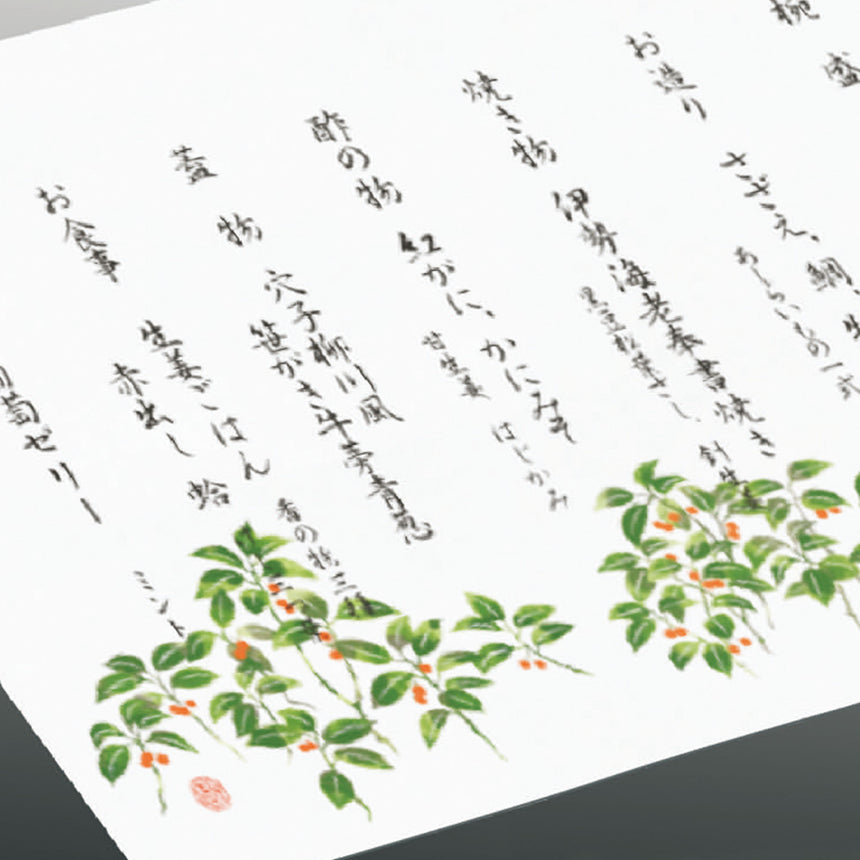 椀盛
お造り
さざえ、鯛、
あしらいもの一式
焼き物
伊勢海老奉書焼き
黒豆松葉さし、針生姜
酢の物
紅がに、かにみそ
甘生姜 はじかみ
蓋物
穴子柳川風
笹がき牛蒡青葱
お食事
生姜ごはん 香の物三種
赤出し 蛤
萄ゼリー
ミント